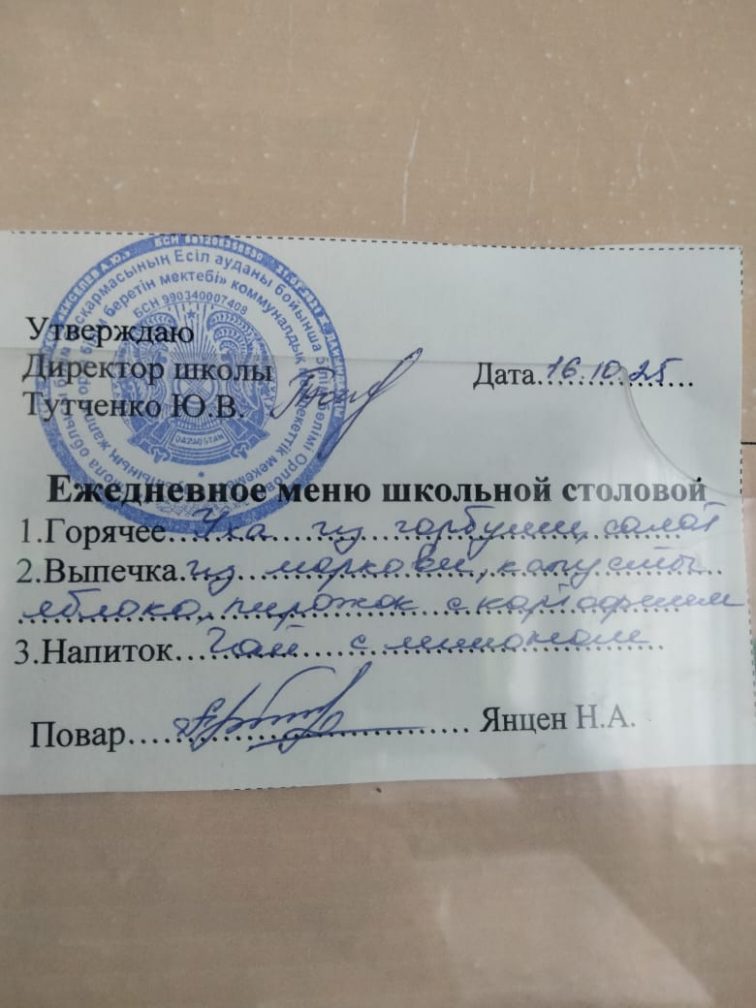 Утверждаю
Директор школы
Тутченко Ю.В.
Дата 16.10.25
Ежедневное меню школьной столовой
1.Горячее Уха из горбуши, салат
2.Выпечка из моркови, капусты
яблоко, пирожок с картофелем
3.Напиток Чай с лимоном
Повар Янцен Н.А.
басқармасының Есіл ауданы бойынша
беретін мектебі» коммуналдық
БСН 990340007408
QAZAQSTAN